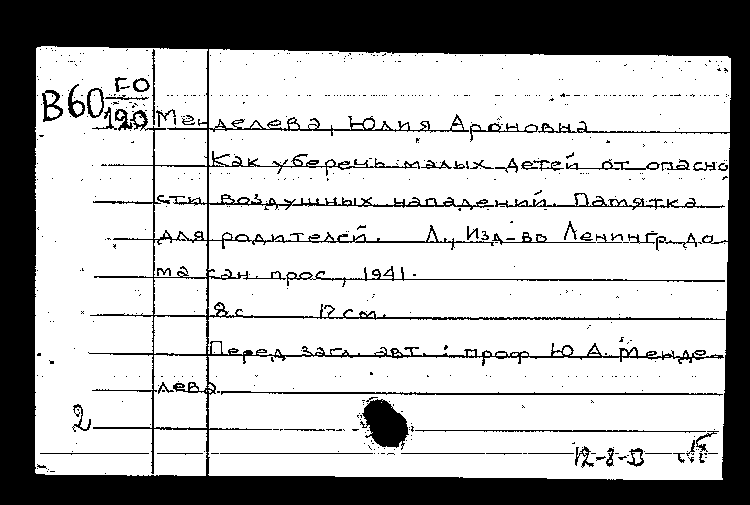 B60 FO
120
Менделева, Юлия Ароновна
Как уберечь малых детей от опасно
сти воздушных нападений. Памятка
для родителей. Л., Изд-во Ленингр. до
ма сан. прос., 1941.
8 с. 17 см.
Перед загл. авт.: проф. Ю. А. Менде-
лева.
2
12-8-53